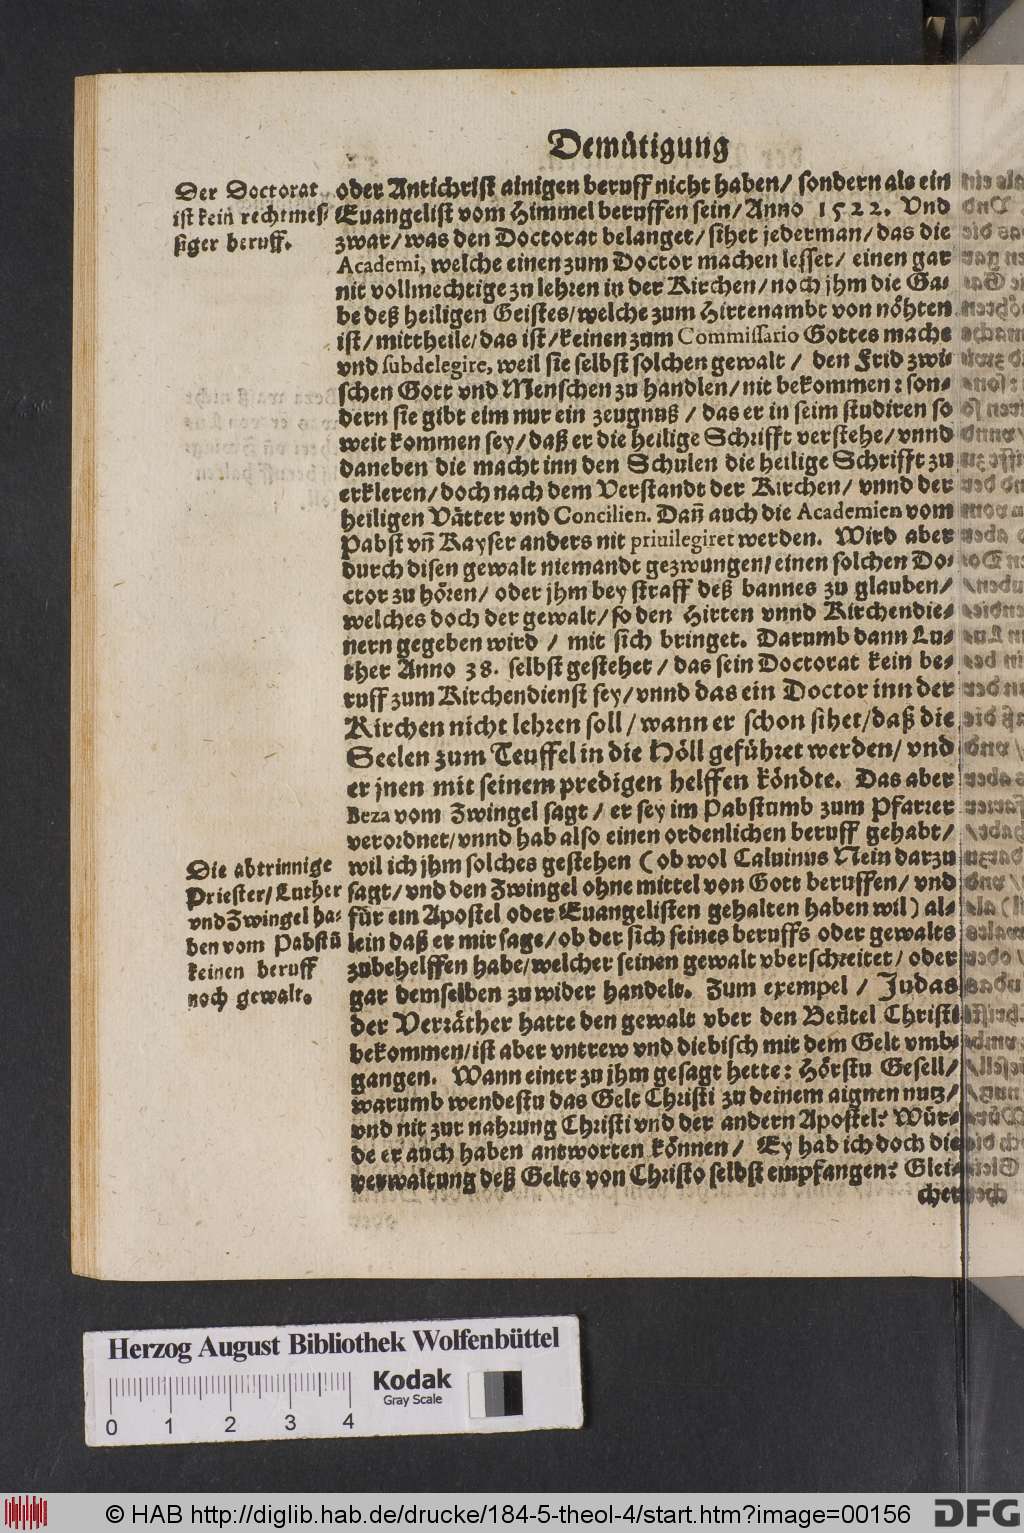 Demütigung
Der Doctorat
ist kein rechtmes-
siger beruff.
oder Antichrist ainigen beruff nicht haben/ sondern als ein
Euangelist vom Himmel beruffen sein/ Anno 1522. Vnd
zwar/ was den Doctorat belanget/ sihet jederman/ das die
Academi, welche einen zum Doctor machen lesset/ einen gar
nit vollmechtige zu lehren in der Kirchen/ noch jhm die Ga-
be deß heiligen Geistes/ welche zum Hirtenambt von nöhten
ist/ mittheile/ das ist/ keinen zum Commissario Gottes mache
vnd subdelegire, weil sie selbst solchen gewalt / den Frid zwi-
schen Gott vnd Menschen zu handlen/ nit bekommen: son-
dern sie gibt eim nur ein zeugnuß / das er in seim studiren so
weit kommen sey/ daß er die heilige Schrifft verstehe/ vnnd
daneben die macht inn den Schulen die heilige Schrifft zu
erkleren/ doch nach dem Verstandt der Kirchen/ vnnd der
heiligen Vätter vnd Concilien. Dañ auch die Academien vom
Pabst vñ Kayser anders nit priuilegiret werden. Wird aber
durch disen gewalt niemandt gezwungen/ einen solchen Do-
ctor zu hören/ oder jhm bey straff deß bannes zu glauben/
welches doch der gewalt/ so den Hirten vnnd Kirchendie-
nern gegeben wird / mit sich bringet. Darumb dann Lu-
ther Anno 38. selbst gestehet / das sein Doctorat kein be-
ruff zum Kirchendienst sey/ vnnd das ein Doctor inn der
Kirchen nicht lehren soll/ wann er schon sihet/ daß die
Seelen zum Teuffel in die Höll geführet werden/ vnd
er jnen mit seinem predigen helffen köndte. Das aber
Beza vom Zwingel sagt / er sey im Pabstumb zum Pfarrer
verordnet/ vnnd hab also einen ordenlichen beruff gehabt/
wil ich jhm solches gestehen ( ob wol Caluinus Nein darzu
sagt/ vnd den Zwingel ohne mittel von Gott beruffen/ vnd
für ein Apostel oder Euangelisten gehalten haben wil) al-
lein daß er mir sage/ ob der sich seines beruffs oder gewalts
zubehelffen habe/ welcher seinen gewalt vberschreitet/ oder
gar demselben zu wider handelt. Zum exempel / Judas
der Verräther hatte den gewalt vber den Beütel Christi
bekommen/ ist aber vntrew vnd diebisch mit dem Gelt vmb-
gangen. Wann einer zu jhm gesagt hette: Hörstu Gesell/
warumb wendestu das Gelt Christi zu deinem aignen nutz/
vnd nit zur nahrung Christi vnd der andern Apostel? Wür-
de er auch haben antworten können/ Ey hab ich doch die
verwaltung deß Gelts von Christo selbst empfangen? Glei-
cher
Die abtrinnige
Priester/ Luther
vnd Zwingel ha-
ben vom Pabstū
keinen beruff
noch gewalt.
Herzog August Bibliothek Wolfenbüttel
Kodak
Gray Scale
0 1 2 3 4
© HAB http://diglib.hab.de/drucke/184-5-theol-4/start.htm?image=00156
DFG